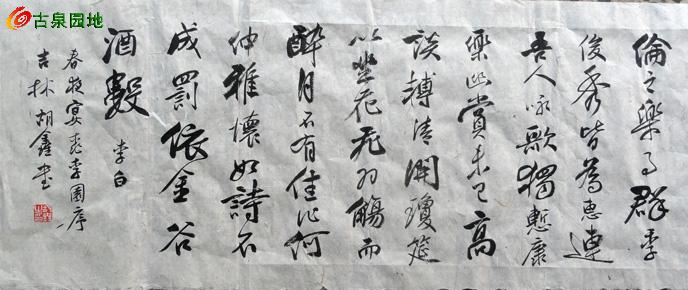 古泉园地
倫之樂事群季
俊秀皆為惠連
吾人詠歌獨慙康
樂幽賞未已高
談轉清開瓊筵
以坐花飛羽觴而
醉月不有佳作何
伸雅懷如詩不
成罰依金谷
酒數 李白
春夜宴桃李園序
吉林 胡鑫書